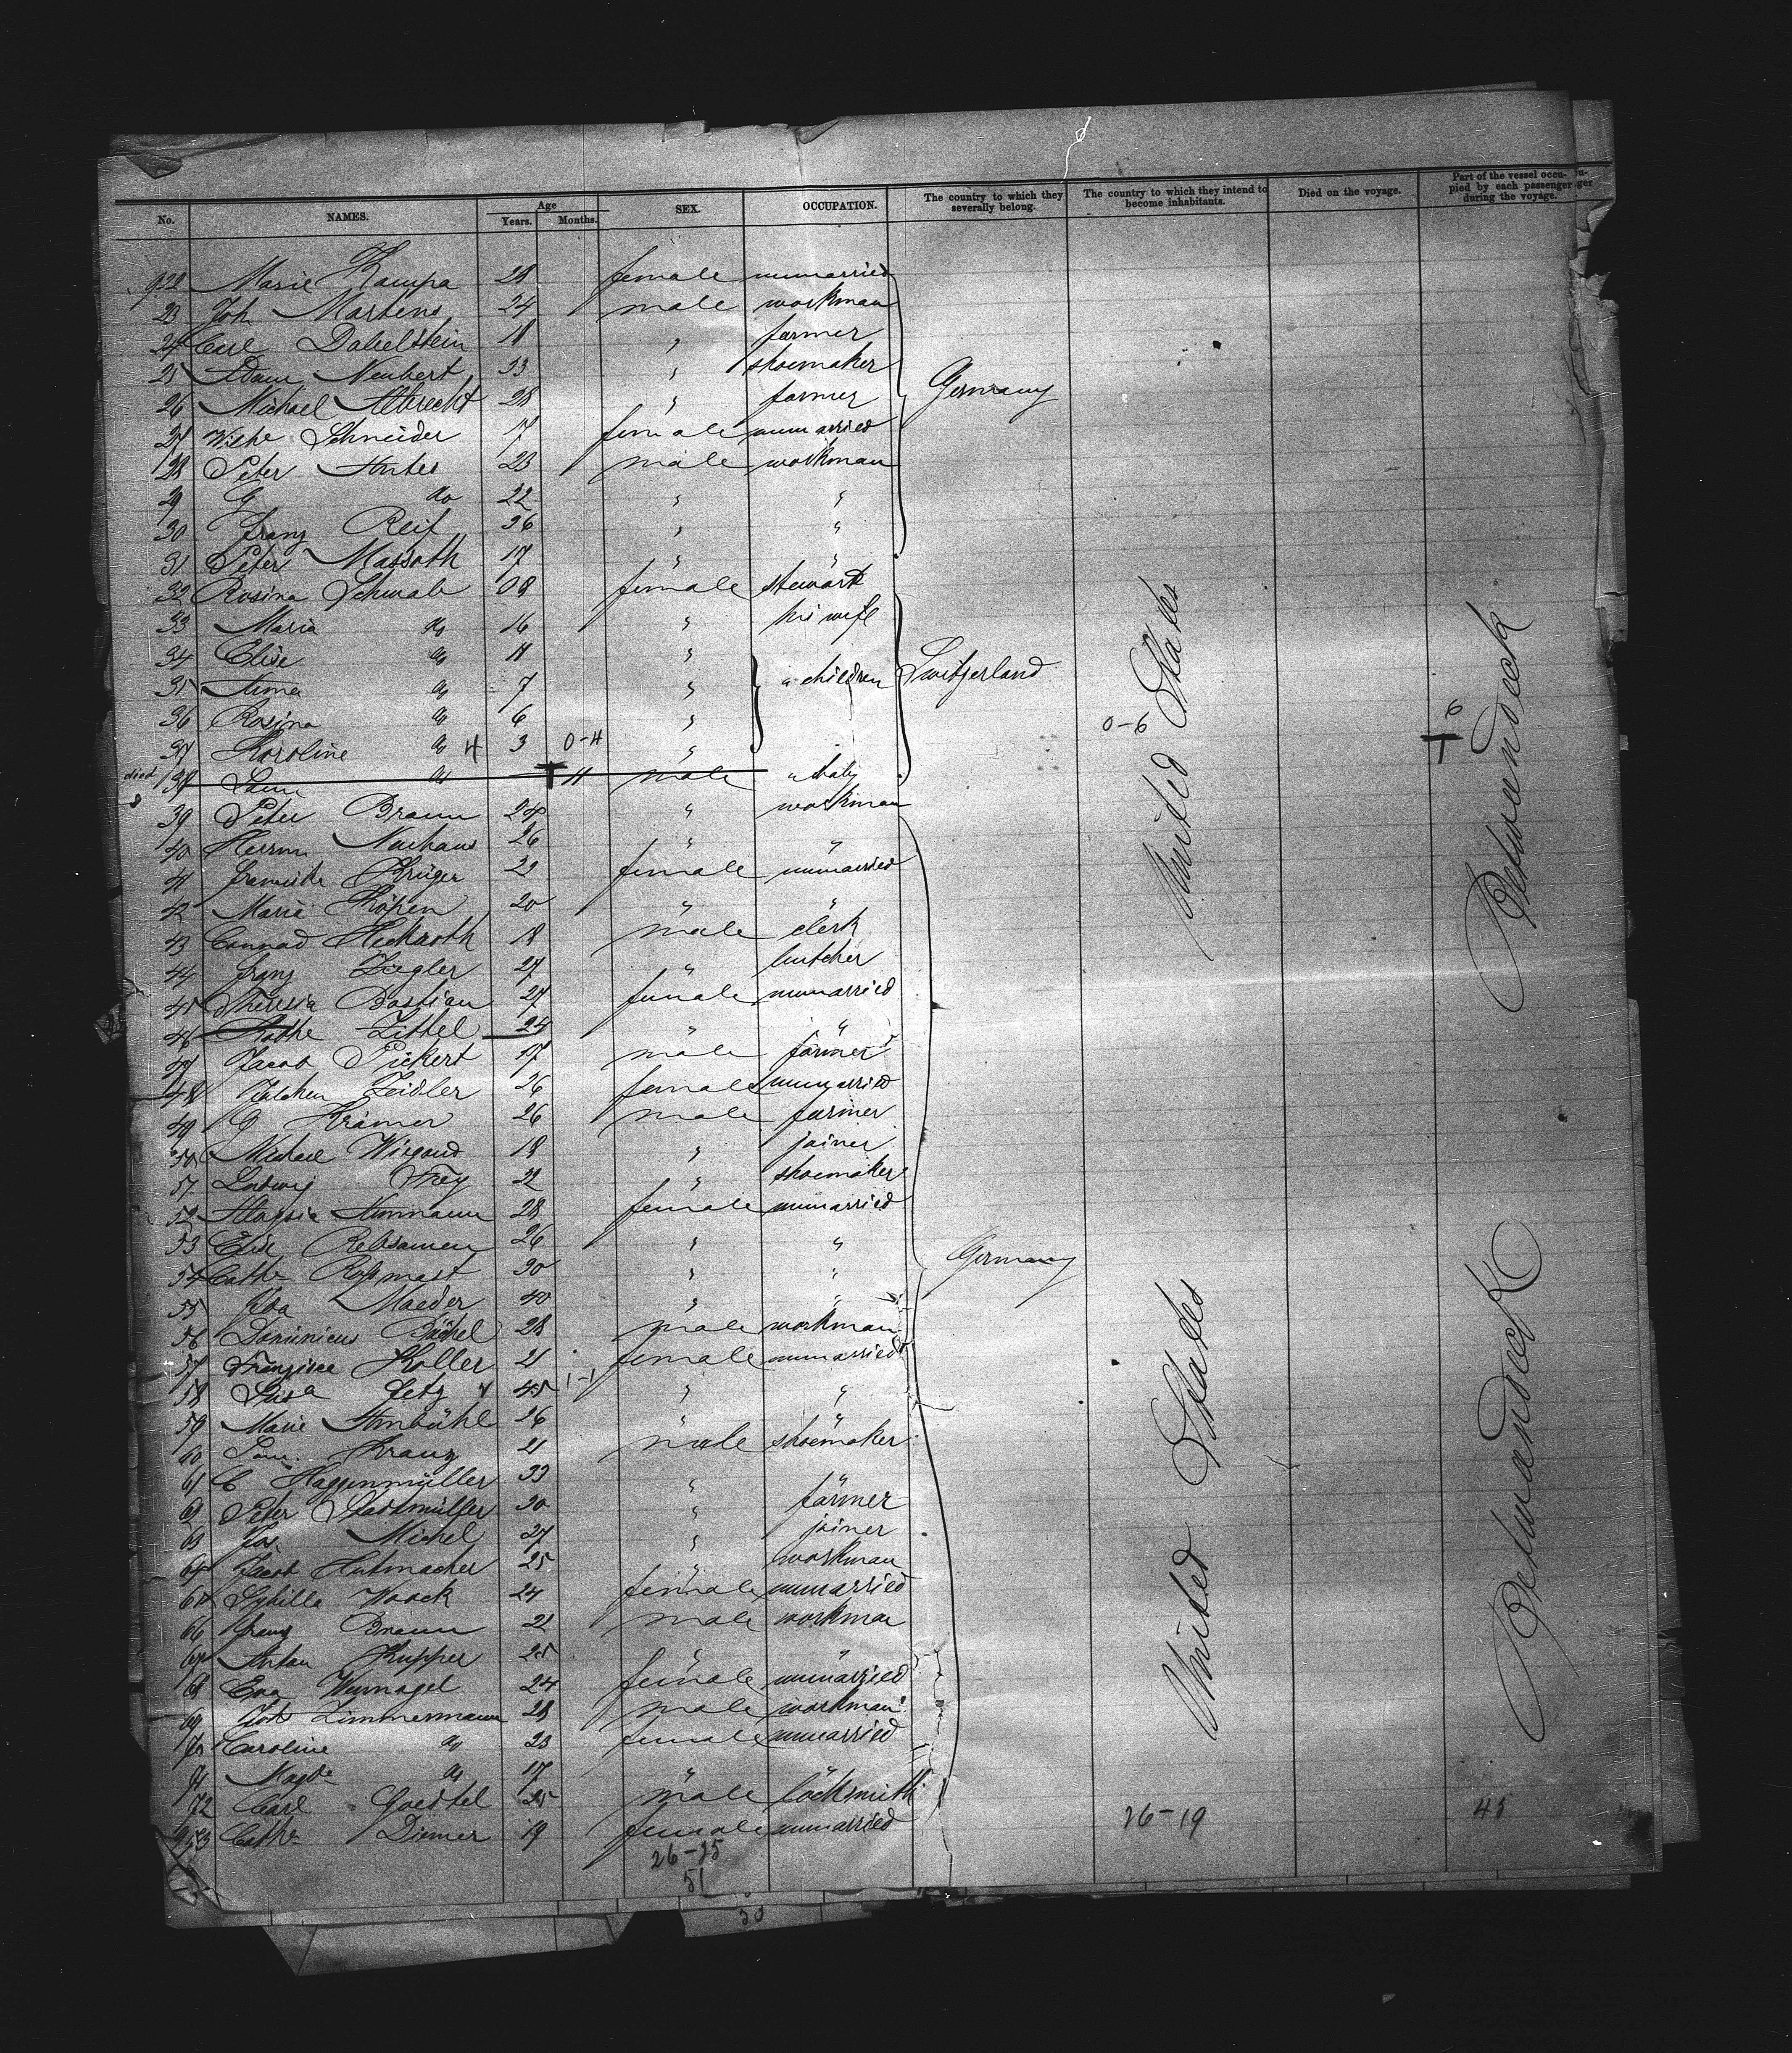 No. NAMES. Age Years. Months. SEX. OCCUPATION. The country to which they severally belong. The country to which they intend to become inhabitants. Died on the voyage. Part of the vessel occupied by each passenger during the voyage.
922 Marie Kampa 28 female unmarried
23 Joh Martens 24 male workman
24 Carl Dabelstein 18 " farmer
25 Adam Neubert 33 " shoemaker
26 Michael Albrecht 28 " farmer Germany
27 Wilhe Schneider 17 female unmarried
28 Peter Antes 23 male workman
29 G do 22 " "
30 Franz Reif 36 " "
31 Peter Massoth 17 " "
32 Rosina Schwab 38 female stewart
33 Maria do 16 " his wife
34 Elise do 11 "
35 Anna do 7 " " children Switzerland
36 Rosina do 6 " 0-6 6
37 Karoline do 4 3 0-4 "
died 38 do 11 male " baby
39 Peter Braun 24 " workman
40 Herrm Neuhaus 26 " "
41 Franziska Krüger 22 female unmarried
42 Marie Köpen 20 " "
43 Conrad Heckroth 18 male clerk
44 Franz Ziegler 27 " butcher
45 Theresia Bastian 27 female unmarried
46 Kathe Zittel 24 " "
47 Jacob Pickert 17 male farmer
48 Julchen Zeidler 26 female unmarried
49 G Krämer 26 male farmer
50 Michael Wiegand 18 " joiner
51 Ludwig Frey 22 " shoemaker
52 Aloysia Ammann 28 female unmarried
53 Elise Rebsamen 26 " "
54 Cathe Roßmast 30 " " Germany
55 Eva Maeder 40 " "
56 Dominicus Büchel 28 male workman
57 Franzisca Koller 21 female unmarried
58 Luisa Letz 45 1-1 " "
59 Marie Ambühl 26 " "
60 Kranz 21 male shoemaker
61 C Haggenmüller 33 "
62 Peter Stadtmüller 30 " farmer
63 Jos. Michel 27 " joiner
64 Jacob Hutmacher 25 " workman
65 Sybilla Waack 24 female unmarried
66 Franz Braun 21 male workman
67 Anton Kupper 25 " "
68 Eva Wurnagel 24 female unmarried
69 Joh Zimmermann 28 male workman
70 Caroline do 23 female unmarried
71 Magde do 17 " "
72 Carl Goedtel 25 male locksmith
973 Cathe Diemer 19 female unmarried
26-19 45
26-25
51
30
United States
Betweendeck
United States
Betweendeck